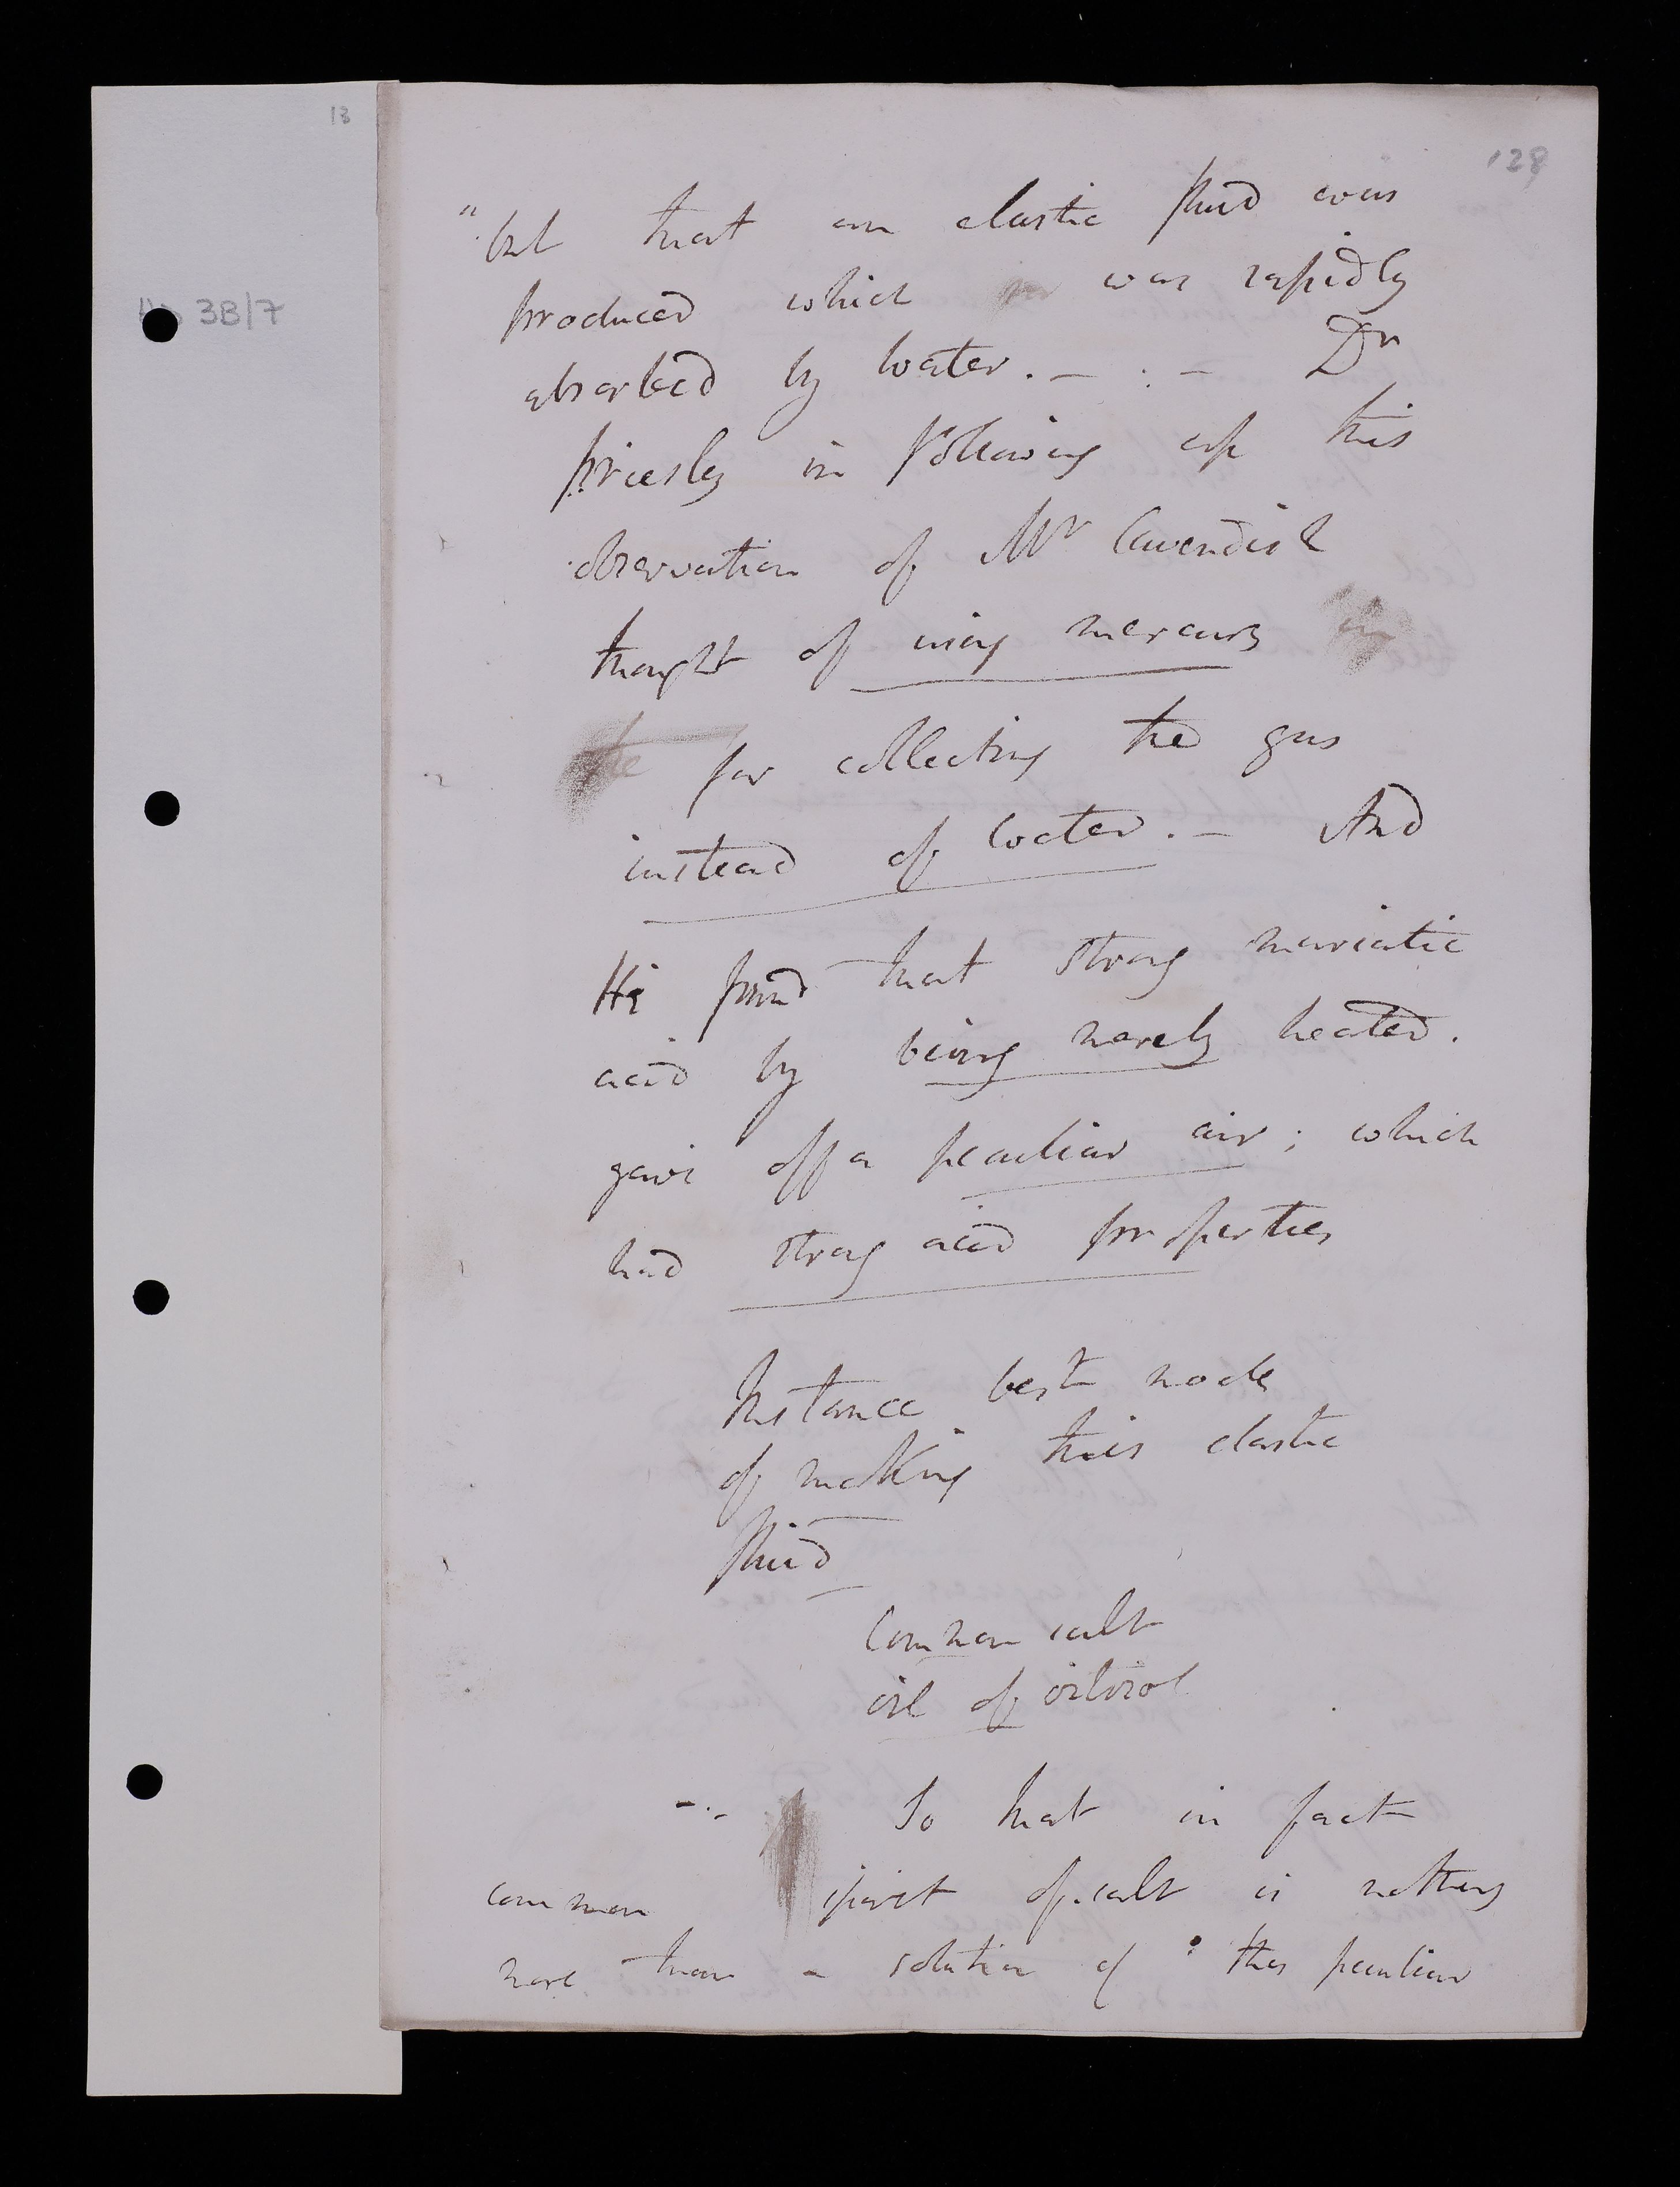 13
128
38/7
"but that an elastic fluid was
produced which was rapidly
absorbed by water. — . — Dr
Priesley in following up this
observation of Mr Cavendish
thought of using mercury
the for collecting the gas
instead of water. — And
He found that strong muriatic
acid by being merely heated.
gave off a peculiar air; which
had strong acid properties
Instance best mode
of making this elastic
fluid
Common salt
oil of vitriol
— . — So that in fact
common spirit of salt is nothing
more than a solution of this peculiar